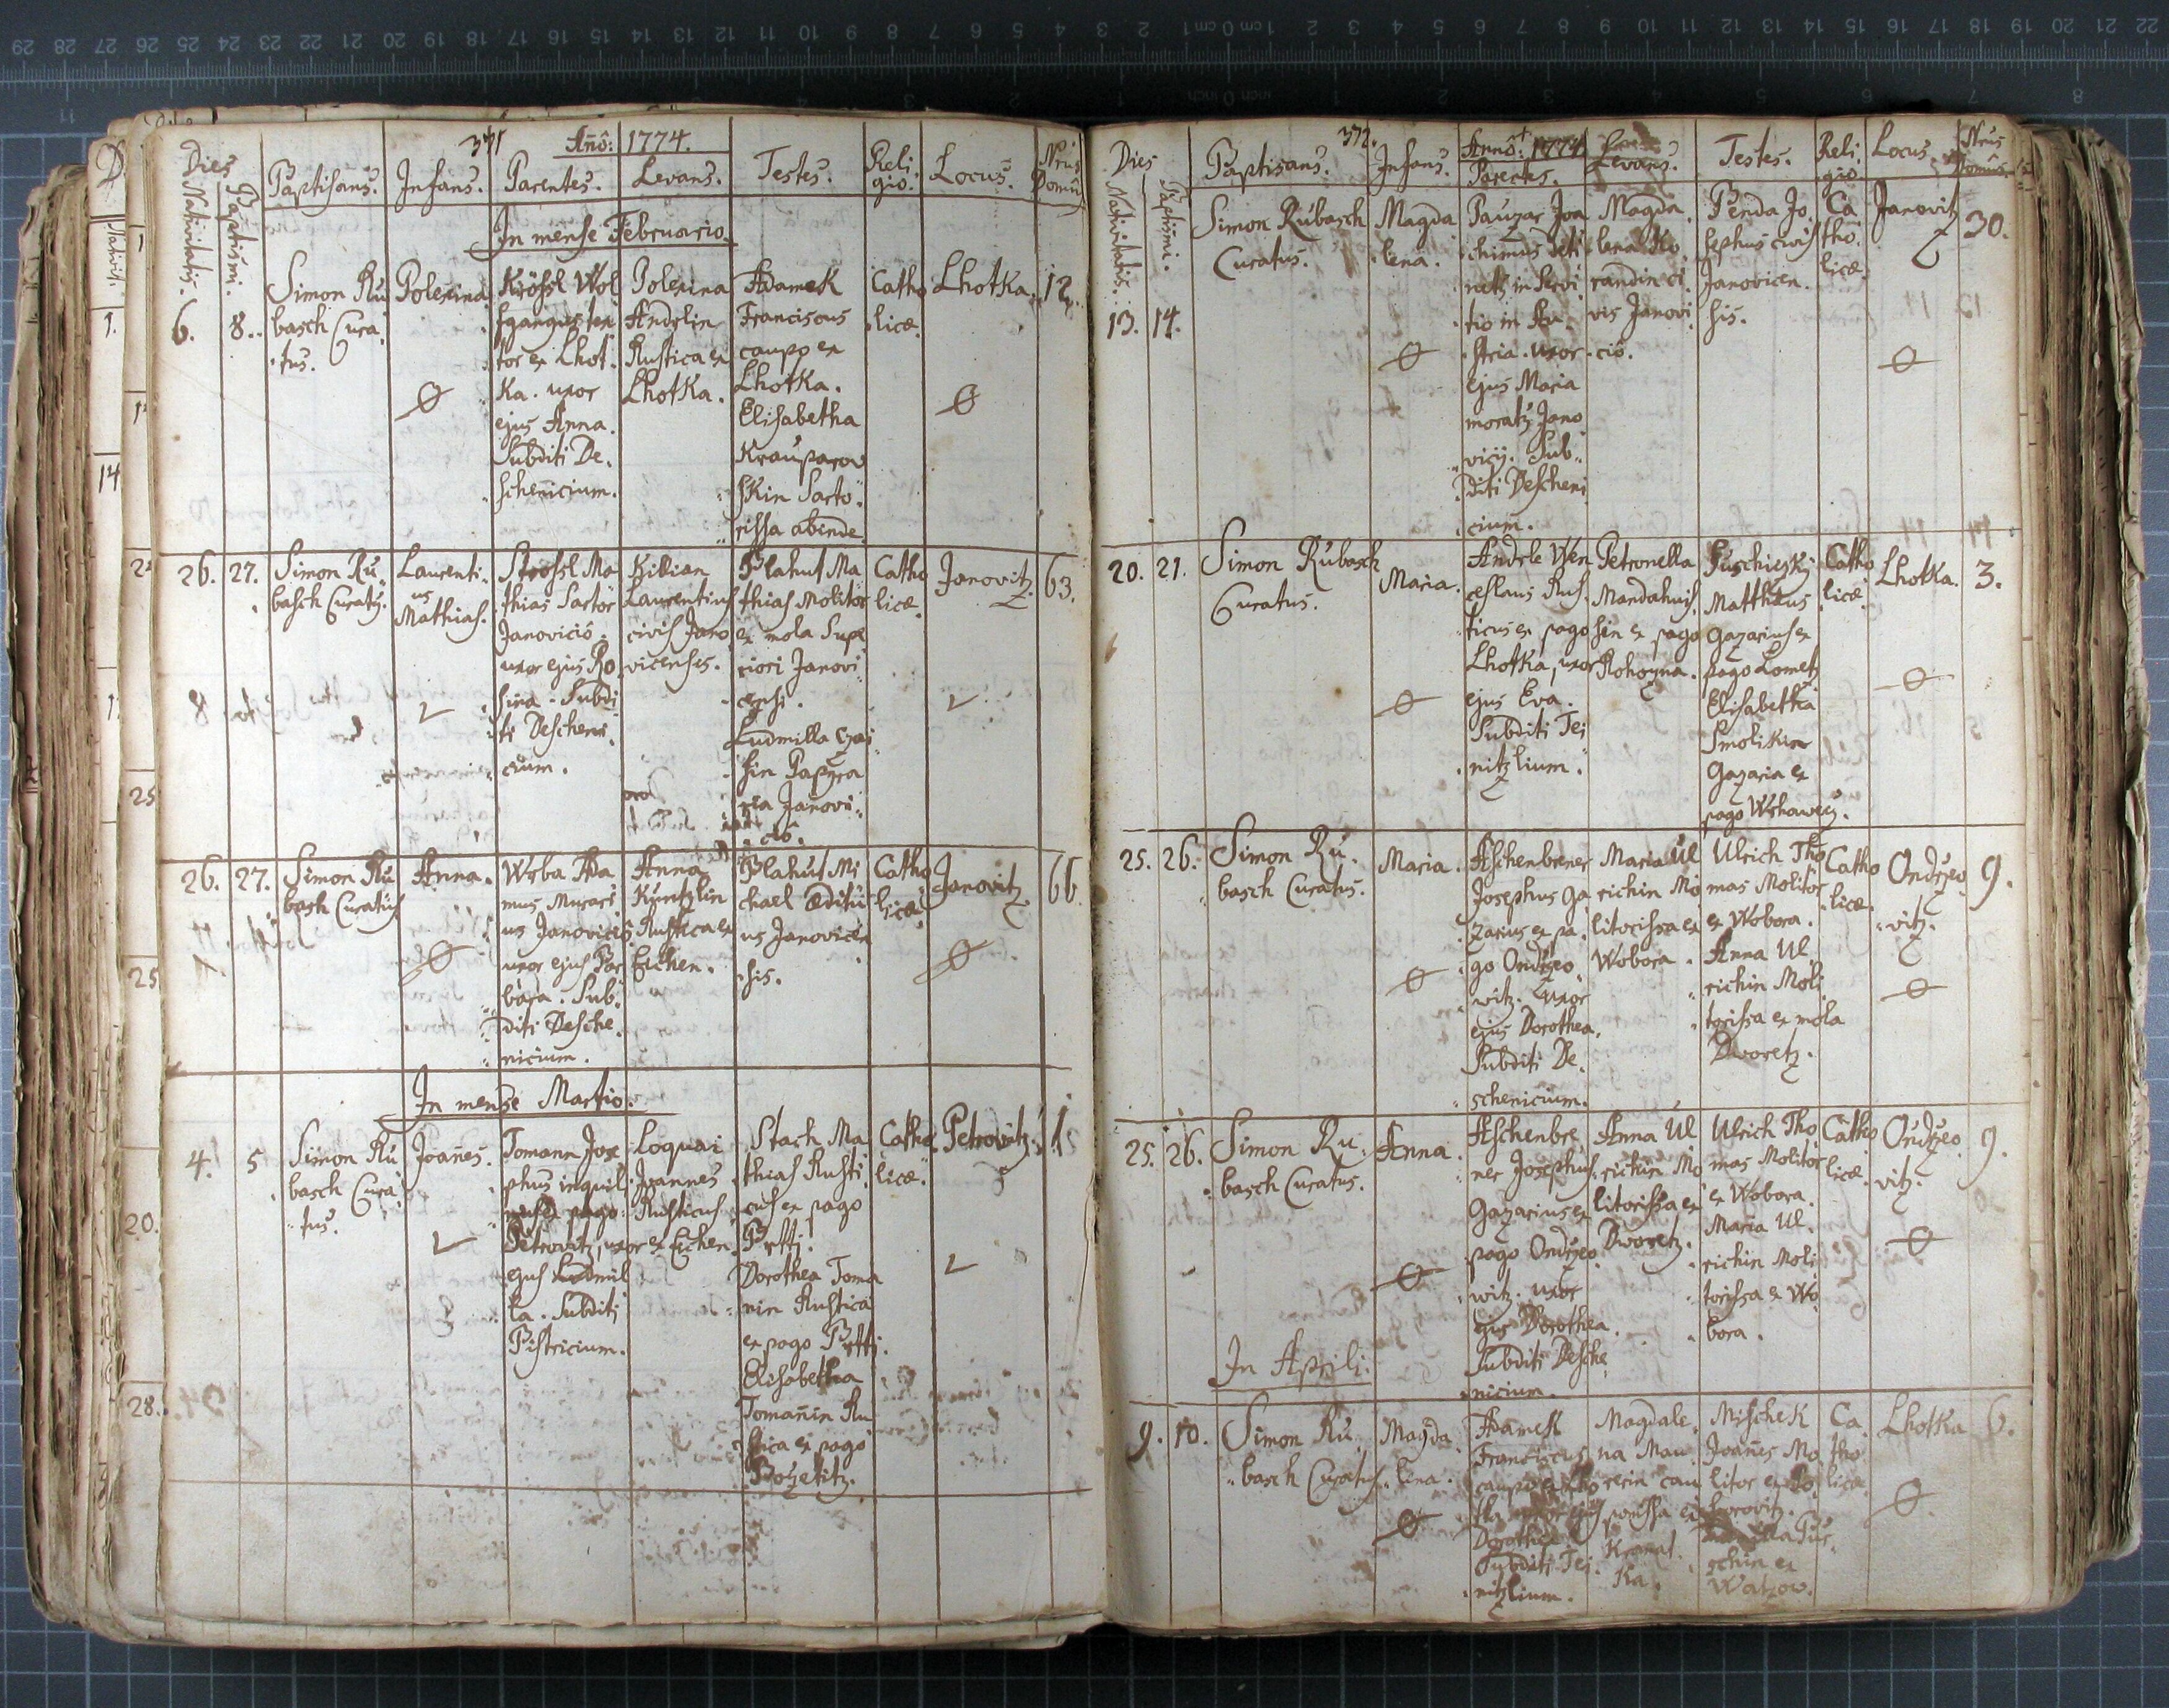 371 Añô: 1774.
Dies
Nativitatis. Baptismi. Baptisans. Infans. Parentes. Levans. Testes. Reli
gio. Locus. Nrus
Domûs
In mense Februario.
6. 8.
Simon Ru
basch Cura
tus.
Polexina
Krössl Wol
fgangus tex
tor ex Lhot.
Ka. uxor
ejus Anna.
Subditi De.
scheñicium.
Polexina
Andrlin
Rustica ex
Lhotka.
Adamek
Franciscus
caupo ex
Lhotka.
Elisabetha
Krauparow
skin Sarto
rissa abende.
Catho
licæ.
Lhotka.
12.
26. 27.
Simon Ru
basch Curatq.
Laurenti
us
Mathias.
Strossl Ma
thias Sartor
Janovicio.
uxor ejus Ro
sina. Subdi
ti Descheni
cium.
Kilian
Laurentius
civis Jano
vicenses.
Blahut Ma
thias Molitor
ex mola Supe
riori Janovi
censi.
Ludmilla
sin Papyra
ria Janovi
ciô.
Catho
licæ.
Janovitz.
63.
26. 27.
Simon Ru
bash Curatus
Anna.
Wrba Ada
mus Murari
us Janovicio
uxor ejus Bar
bara. Sub
diti Desche.
nicium.
Anna
Kuntzlin
Rustica ex
Eichen.
Blahut Mi
chael Æditu
us Janovicen
sis.
Catho
licæ
Janovitz.
66.
In mense Martio.
4. 5
Simon Ru
basch Cura
tus.
Joañes.
Tomann Jose
phus inquil
nus ex pago
Petrovitz, uxor
ejus Ludmil
la. Subditi
Bistricium.
Loquai
Joannes
Rusticus
ex Eichen.
Stach Ma
thias Rusti
cus ex pago
Dorothea Toma
nin Rustica
ex pago
Elisabetha
Tomañin Ru
stica ex pago
Bozetitz.
Catho
licæ.
Petrovitz.
1
372. Annô: 1774
Dies
Nativitatis. Baptismi. Baptisans. Infans. Parectes. Levans. Testes. Reli
gio. Locus Nrus
Domûs
13. 14.
Simon Rubasch
Curatus.
Magda
lena.
Pauzar Joa
chimus
tio in Au
stria. uxor
ejus Maria
moratq Jano
vicij. Sub
diti Descheni
cium.
Magda
lena Ko
randin ci
vis Janovi
ciô.
Penda Jo
sephus civis
Janovicen
sis.
Ca
tho
licæ.
Janovitz
30.
20. 21.
Simon Rubasch
Curatus.
Maria.
Andrle Wen
ceslaus Rus
ticus ex pago
Lhotka, uxor
ejus Eva.
Subditi Tei
nitzlium.
Petronella
Mandahuis
sin ex pago
Rohozna.
Matthæus
Gazarius ex
pago Lometz
Elisabetha
Smolikin
Gazaria ex
pago
Catho
licæ.
Lhotka.
3.
25. 26.
Simon Ru
basch Curatus.
Maria.
Aschenbrener
Josephus Ga
zarius ex pa
go Ondrzeo
witz. uxor
ejus Dorothea.
Subditi De.
schenicium.
Maria Ul
richin Mo
litorissa ex
Wobora.
Ulrich Tho
mas Molitor
ex Wobora.
Anna Ul
richin Moli
torissa ex mola
Dworetz.
Catho
licæ.
Ondrzeo
vitz.
9.
25. 26.
Simon Ru
basch Curatus.
Anna.
Aschenbre
ner Josephus
Gazarius ex
pago Ondrzeo
witz. uxor
ejus Dorothea.
Subditi Desche
nicium.
Anna Ul
richin Mo
litorissa ex
Dworetz.
Ulrich Tho
mas Molitor
ex Wobora.
Maria Ul
richin Moli
torissa ex Wo
bora.
Catho
licæ.
Ondrzeo
vitz.
9.
In Aprili.
9. 10.
Simon Ru
basch Curatus
Magda
lena.
Adamek
Franciscus
caupo ex Lho
tka uxor ejus
Dorothea
Subditi Tei
nitzlium.
Magdale
na Mau
rerin cau
ponissa ex
Ka.
Mischek
Joañes Mo
litor ex
schin ex
Watzow.
Ca
tho
licæ
Lhotka
6.